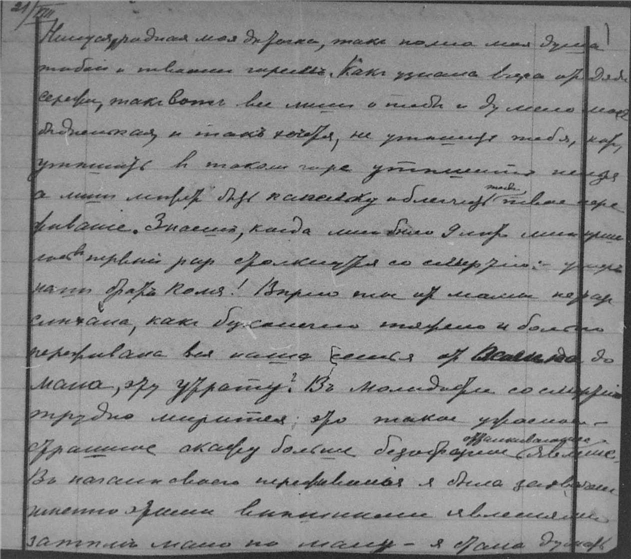 21/VIII
родная моя деточка, такъ полна моя душа
тобой и твоимъ горемъ. Какъ узнала вчера отъ дяди
Сережи, такъ вотъ все мысли о тебѣ и думаю моя
бѣдненькая, и такъ хочется, не утѣшить тебя,
утѣшить въ такомъ горе
а лишь можетъ быть капельку облегчить твое пере
живаніе. Знаешь, когда мнѣ было 9 лѣтъ мнѣ приш
лось первый разъ столкнуться со смертью: умеръ
нашъ братъ Коля! Вѣрно ты отъ мамы не разъ
слыхала, какъ безконечно тяжело и больно
переживала вся наша семья отъ до
мала, эту утрату? Въ молодости со смертью
трудно мириться; это такое ужасное
страшное скажу больше явленіе.
Въ началѣ своего переживанья я была
именно этимъ внѣшнимъ явленіемъ
затѣмъ мало по малу – я стала думать